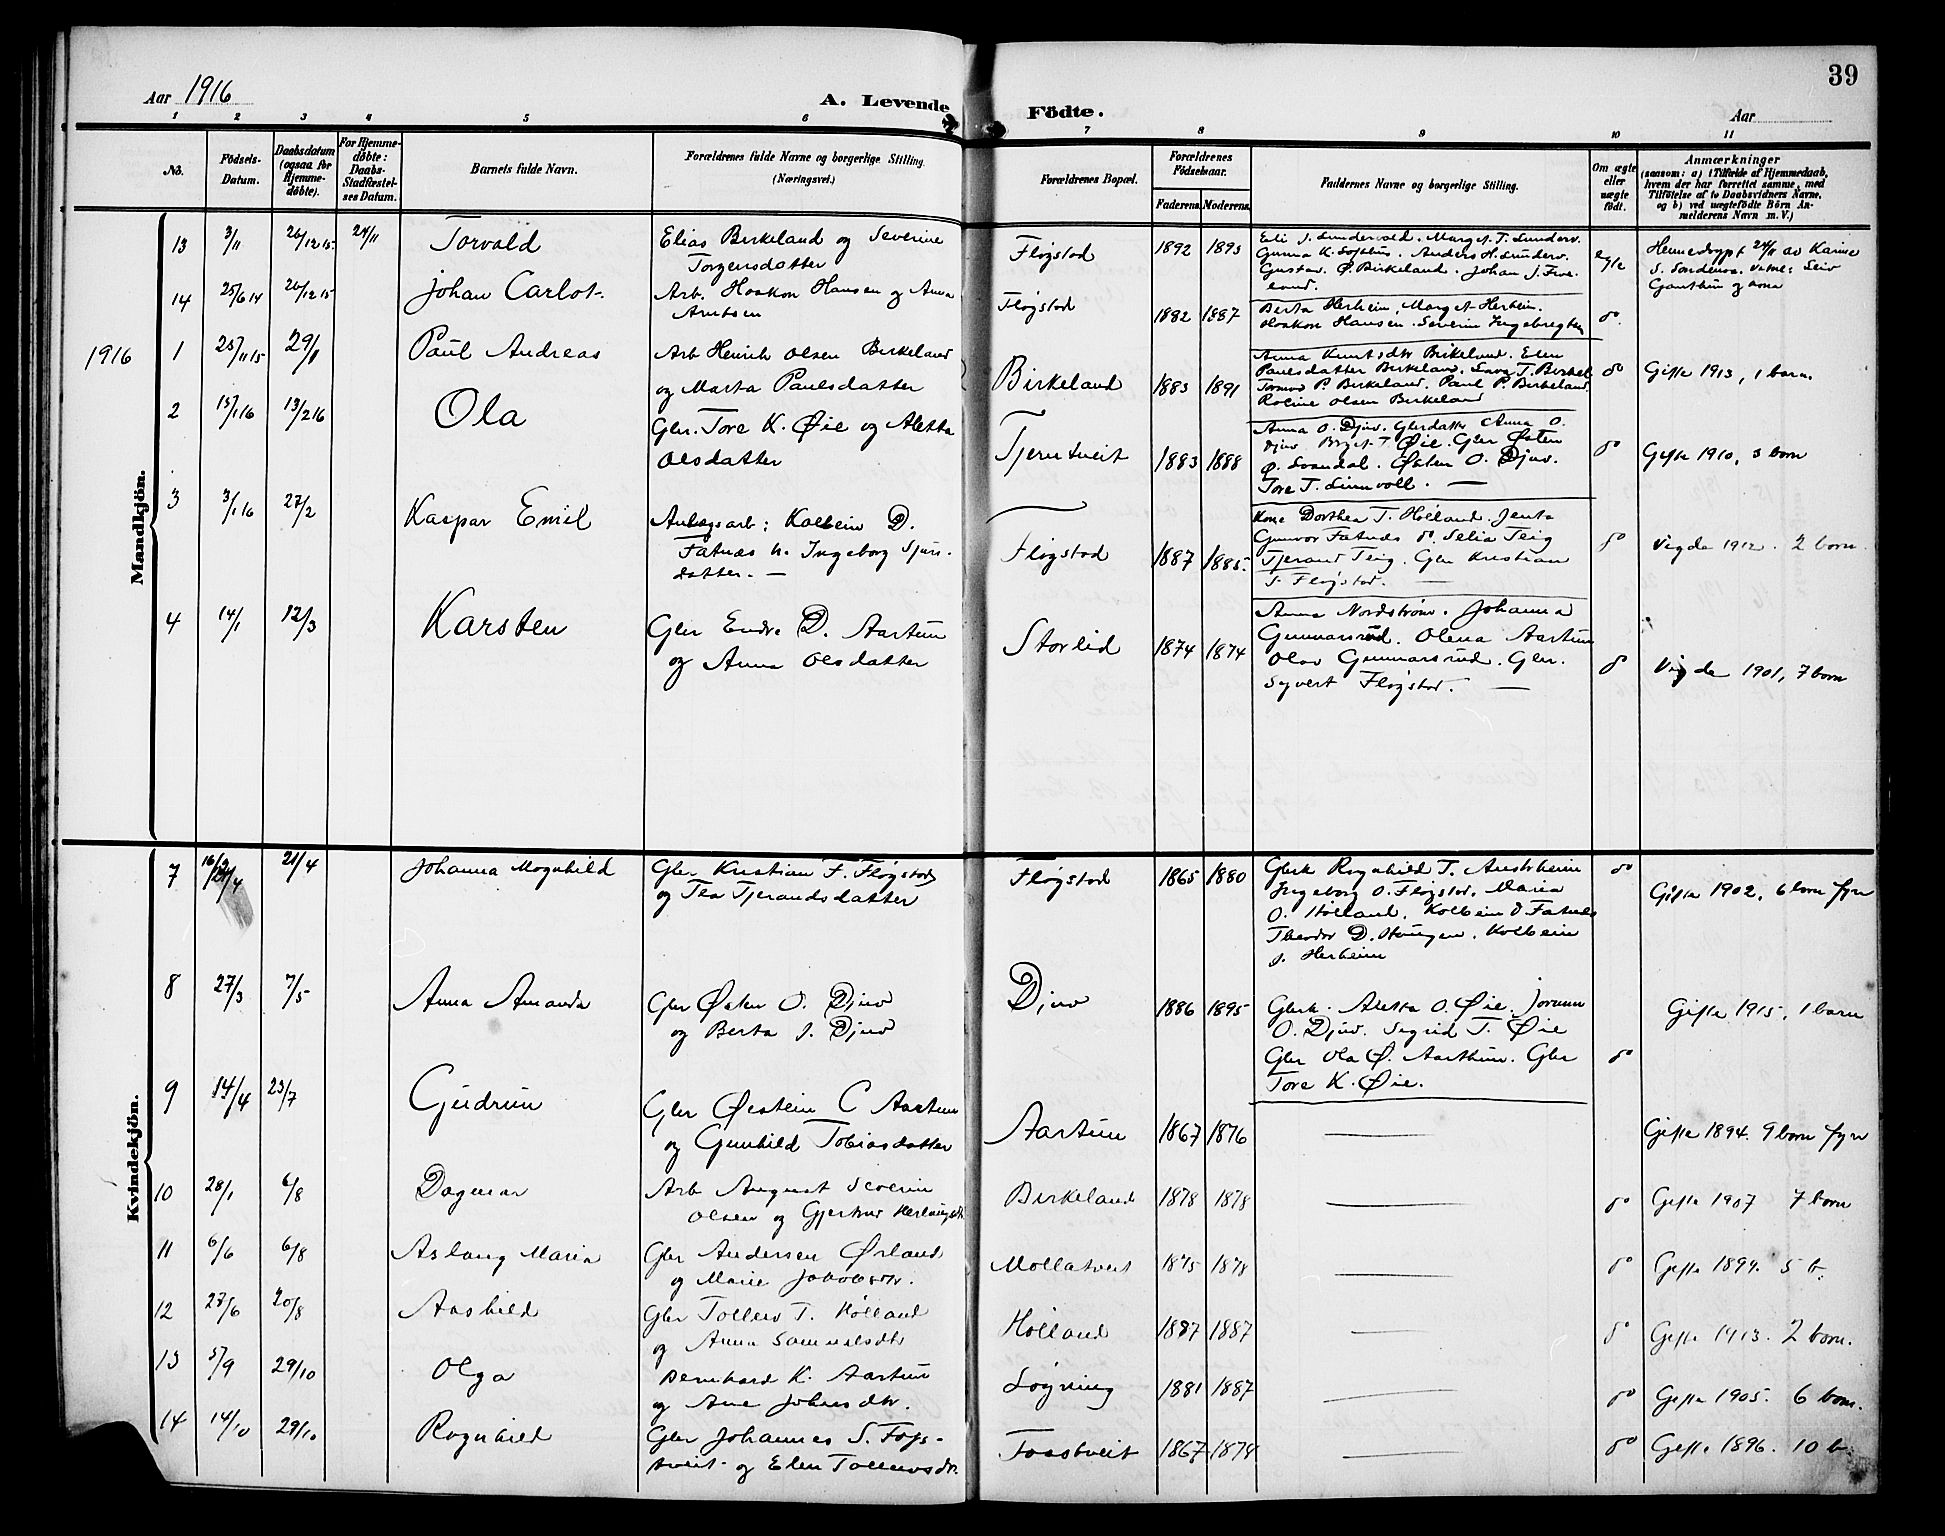 39
Aar 1916
A. Levende Födte.
Aar
1 2 3 4 5 6 7 8 9 10 11
No.
Födsels-
Datum.
Daabsdatum
(ogsaa for
Hjemme-
döbte).
For Hjemme-
döbte:
Daabs-
Stadfæstel-
ses Datum.
Barnets fulde Navn.
Forældrenes fulde Navne og borgerlige Stilling.
(Næringsvei.)
Forældrenes Bopæl.
Forældrenes
Födselsaar.
Faderens. Moderens.
Faddernes Navne og borgerlige Stilling.
Om ægte
eller
uægte
födt.
Anmærkninger
(saasom: a) i Tilfælde af Hjemmedaab,
hvem der har forrettet samme, med
Tilföielse af to Daabsvidners Navne,
og b) ved uægtefödte Börn An-
melderens Navn m. V.)
Mandkjön.
13 3/11 26/12 15 24/11 Torvald
Elias Birkeland og Severine
Torgersdatter
Fløgstad 1892 1893
Gustav Ø. Birkeland. Johan J. 
egte
Hemedøypt 24/11 av Karine
14 25/6 14 26/12 15 Johan Carlot
Arb. Haakon Hansen og Anna
Arntsen
Fløgstad 1882 1887
Berta Herheim, Marget Herheim.
Haakon Hansen. Severin Ingebregtsen
do.
1916
1 25/11 15 29/1 Paul Andreas
Arb Henrik Olsen Birkeland
og Marta Paulsdatter
Birkeland 1883 1891
Anna Knutsdtr Birkeland. Elen
Paulsdatter Birkeland.
Tormod P. Birkeland, Paul P. Birkeland
Roline Olsen Birkeland
do
Gifte 1913, 1 barn.
2 15/1 16 13/2 16 Ola
Gbr. Tore K. Øie og Aletta
Olsdatter
Tjerntveit 1883 1888
Anna O. Djuv. Gbrdatter Anna O.
Djuv T. Øie. Gbr Østen
Ø. Svandal. Østen O. Djuv.
Tore T. Linnvoll. —
do
Gifte 1910, 3 born
3 3/1 16 27/2 Kaspar Emil
Anlægsarb: Kolbein D.
Fatnes h. Ingeborg Sjurs-
datter. —
Fløgstad 1887 1885.
Kone Dorthea T. Hølland. Jenta
Gunvor Fatnes do. Selia Teig
Tjerand Teig. Gbr Kristian
T. Fløgstad. —
do
Vigde 1912. 2 born.
4 14/1 12/3 Karsten
Gbr Endre D. Aartun
og Anna Olsdatter
Storlid 1874 1874
Anna Nordstrøm. Johanna
Gunnarsrud. Olena Aartun
Olav Gunnarsrud. Gbr.
Syvert Fløgstad. —
do
Vigde 1901, 7 born
Kvindekjön.
7 21/4 Johanna Magnhild
Gbr. Kristian F. Fløgstad
og Tea Tjerandsdatter
Fløgstad 1865 1880
Gbrk Ragnhild T. Austrheim
Ingeborg O. Fløgstad, Maria
O. Hølland, Kolbein D Fatnes
Theodor D. Haugen. Kolbein
J. Herheim
do
Gifte 1902, 6 born fyr
8 27/3 7/5 Anna Amanda
Gbr Østen O. Djuv
og Berta J. Djuv
Djuv 1886 1895
Gbrk. Aletta O. Øie. Jorunn
O. Djuv. Sigrid T. Øie
Gbr Ola Ø. Aarthun. Gbr
Tore K. Øie.
do
Gifte 1915, 1 barn
9 14/4 23/7 Gudrun
Gbr Øistein C Aartun
og Gunhild Tobiasdatter
Aartun 1867 1876 —
Gifte 1894. 9 born fyr
10 28/1 6/8 Dagmar
Arb August Severin
Olsen og Gjertrud
Birkeland 1878 1878 — do
Gifte 1907 7 born
11 6/6 6/8 Aslaug Maria
Gbr Andersen Ørland
og Marie Jakobsdtr.
Mollatveit 1875 1878 — do
Gifte 1894. 5 b.
12 27/6 20/8 Aashild
Gbr Tollev T. Hølland
og Anna Samuelsdtr
Hølland 1887 1887 — do
Gifte 1913. 2 born.
13 5/9 29/10 Olga
Bernhard K. Aartun
og Ane Johnsdtr.
Løgning 1881 1887 — do
Gifte 1905. 6 born.
14 14/10 29/10 Ragnhild
Gbr Johannes S. Fos-
tveit og Elen Tollevsdtr.
Fosstveit 1867 1874 — do
Gifte 1896. 10 b.